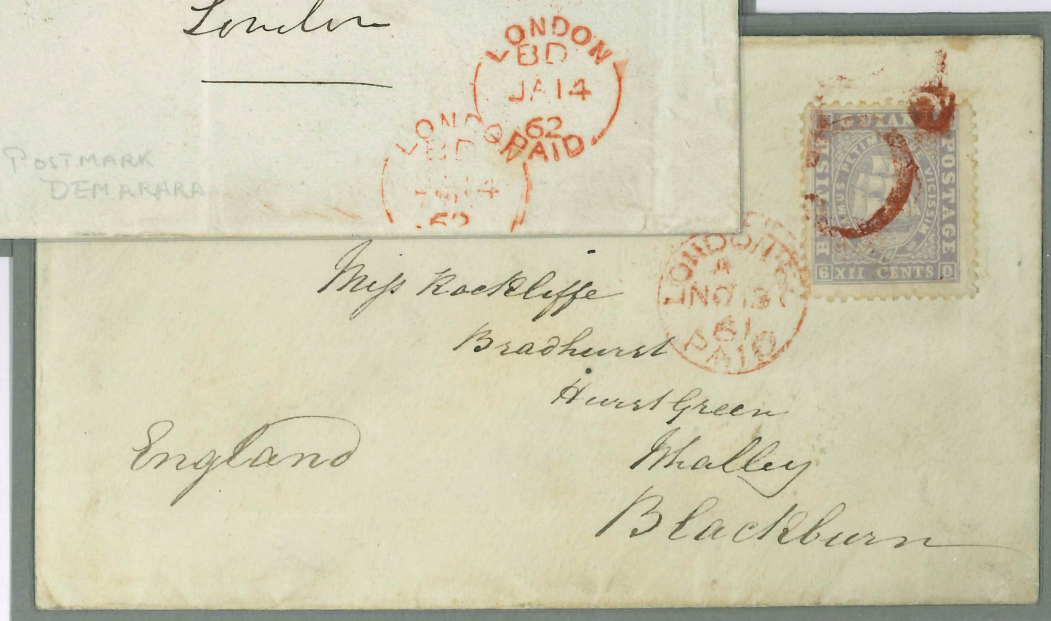 London
LONDON
BD
JA 14
62
PAID
LONDON
BD
14
62
POSTMARK
DEMARARA
BRITISH
GUIANA
POSTAGE
DAMUS PETIMUS QUE VICISSIM
6 XII CENTS 0
LONDON
A
NO 13
61
PAID
Miss Rockliffe
Bradhurst
Hurst Green
Whalley
Blackburn
England